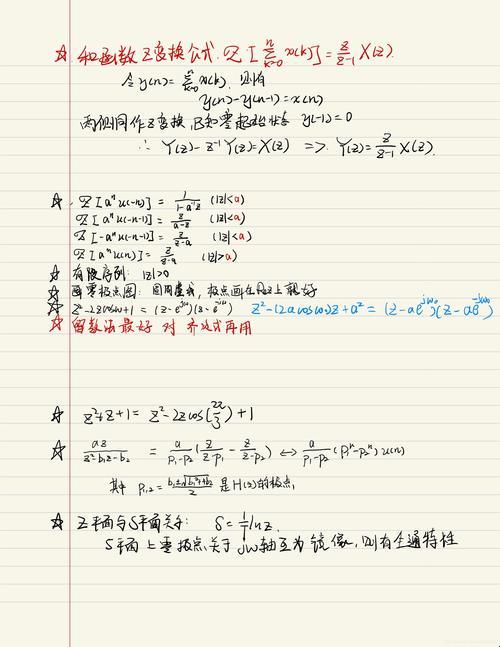 ☆ 和函数Z变换公式. Z[∑_{k=0}^{n} x(k)] = z/(z-1) X(z).
令y(n)=∑_{k=0}^{n} x(k), 则有
y(n)-y(n-1)=x(n)
两侧同作Z变换, 已知零起始状态 y(-1)=0
∴ Y(z)-z⁻¹Y(z)=X(z) => Y(z)=z/(z-1) X(z).
☆. Z[aⁿu(-n)] = 1/(1-a⁻¹z) (|z|<a)
Z[aⁿu(-n-1)] = z/(a-z) (|z|<a)
Z[-aⁿu(-n-1)] = z/(z-a) (|z|<a)
Z[aⁿu(n)] = z/(z-a) (|z|>a)
☆ 有限序列: |z|>0
☆ 画零极点图: 圆用虚线, 极点画在
☆ z²-2zcosω+1 = (z-e^{jω})(z-e^{-jω}) z²-(2acosω₀)z+a² = (z-ae^{jω₀})(z-ae^{-jω₀})
☆ 留数法最好对 再用
☆ z²+z+1 = z²-2zcos(2π/3)+1
☆ az/(z²-b₁z-b₂) = a/(p₁-p₂) (z/(z-p₁) - z/(z-p₂)) ↔ a/(p₁-p₂) (p₁ⁿ-p₂ⁿ)u(n)
其中 p₁,₂ = (b₁±√(b₁²+4b₂))/2 是H(z)的极点,
☆ Z平面与S平面关于: S = 1/T ln z.
S平面上零极点关于jω轴互为镜像, 则有全通特性